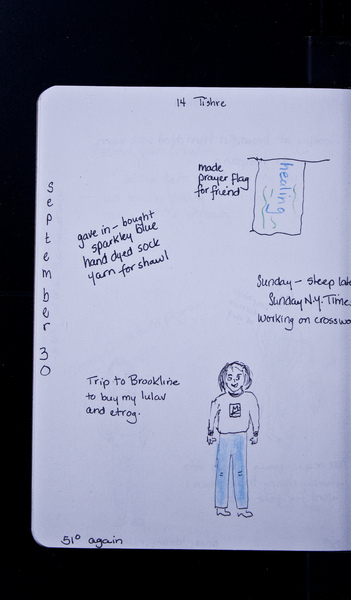 14 Tishre
made
prayer flag
for friend
healing
September 30
gave in - bought
sparkley blue
hand dyed sock
yarn for shawl
Sunday - sleep late
Sunday N.Y. Time
working on crosswo
Trip to Brookline
to buy my lulav
and etrog.
51° again